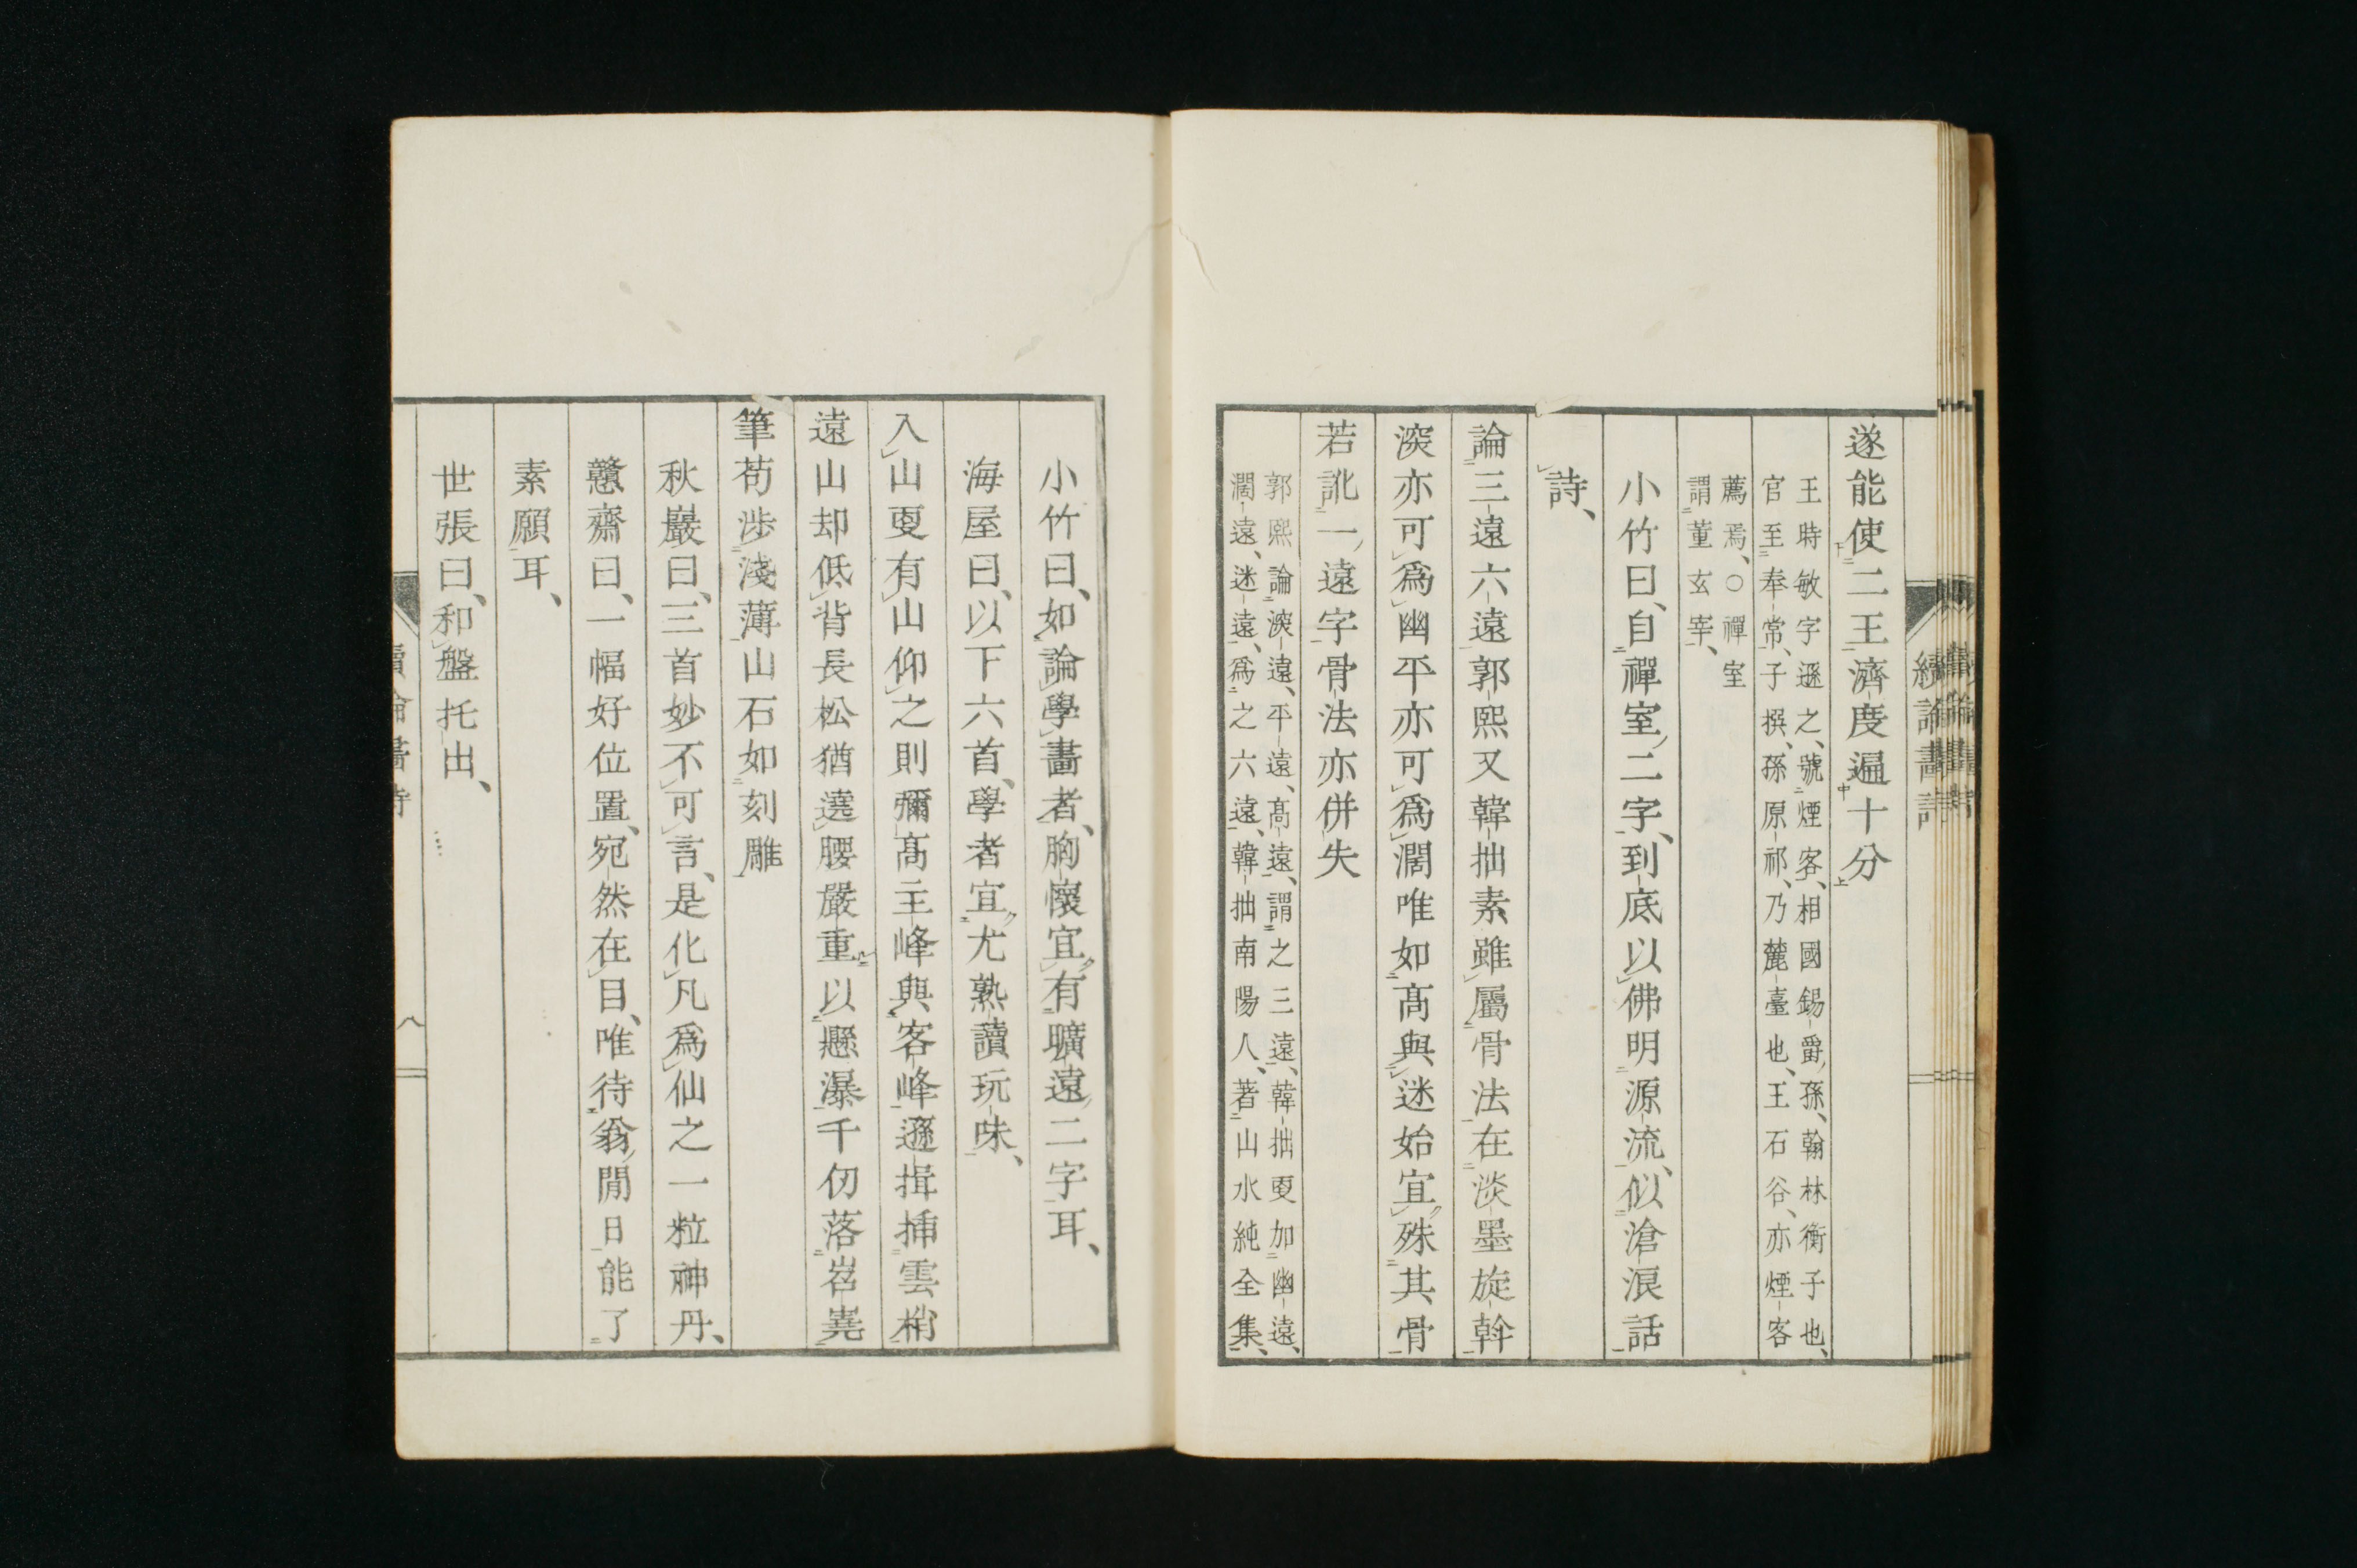 續論畫詩
遂能使二王濟度逼十分
王時敏字遜之、號煙客、相國錫爵孫、翰林衡子也、
官至奉常、子撰、孫原祁、乃麓臺也、王石谷、亦煙客
薦焉、○禪室
謂董玄宰、
小竹曰、自禪室二字、到底以佛明源流、似滄浪話
詩、
論三遠六遠郭熙又韓拙素雖屬骨法在淡墨旋斡
深亦可爲幽平亦可爲濶唯如高與迷始宜殊其骨
若訛一遠字骨法亦併失
郭熙論深遠、平遠、高遠、謂之三遠、韓拙更加幽遠、
濶遠、迷遠、爲之六遠、韓拙南陽人、著山水純全集、
小竹曰、如論學畫者、胸懷宜有曠遠二字耳、
海屋曰、以下六首、學者宜尤熟讀玩味、
入山更有山仰之則彌高主峰與客峰遜揖揷雲梢
遠山却低背長松猶遶腰嚴重以懸瀑千仞落岧嶤
筆苟涉淺薄山石如刻雕
秋巖曰、三首妙不可言、是化凡爲仙之一粒神丹、
戇齋曰、一幅好位置、宛然在目、唯待翁閒日能了
素願耳、
世張曰、和盤托出、
續論畫詩
八